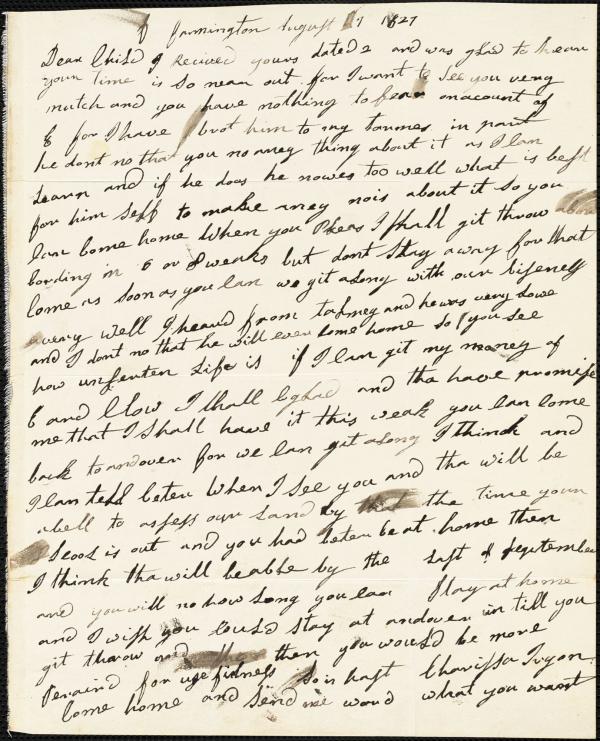 Farmington August 27 1827
Dear Child I Recived yours dated 2 and was glad to hear
your time is so near out for I want to See you very
mutch and you have nothing to fear onacount of
& for I have brot him to my tarmes in part
he dont no that you no aney thing about it as I Can
Learn and if he does he nowes too well what is best
for him Self to make aney nois about it So you
Can Come home When you Pleas I Shall git throw
bording in 6 or 8 weeks but dont Stay away for that
Come as Soon as you Can we git along with our bisness
avery well I heard from and he was very Lowe
and I dont no that he will ever Come home So you See
how unserten Life is if I Can git my money of
C and Clow I Shall be glad and tha have promise
me that I Shall have it this weak you Can Come
back to andover for we Can git along I think and
I Can tell beter When I See you and tha will be
abell to assess our Land by the time your
Scool is out and you had beter be at home then
I think tha will beable by the Last of September
and you will no how Long you Can Stay at home
and I wish you Could Stay at andover in till you
git throw and then you would be more
Peraird for usefulness So in hast Charissa Tryon
Come home and Send me word what you want